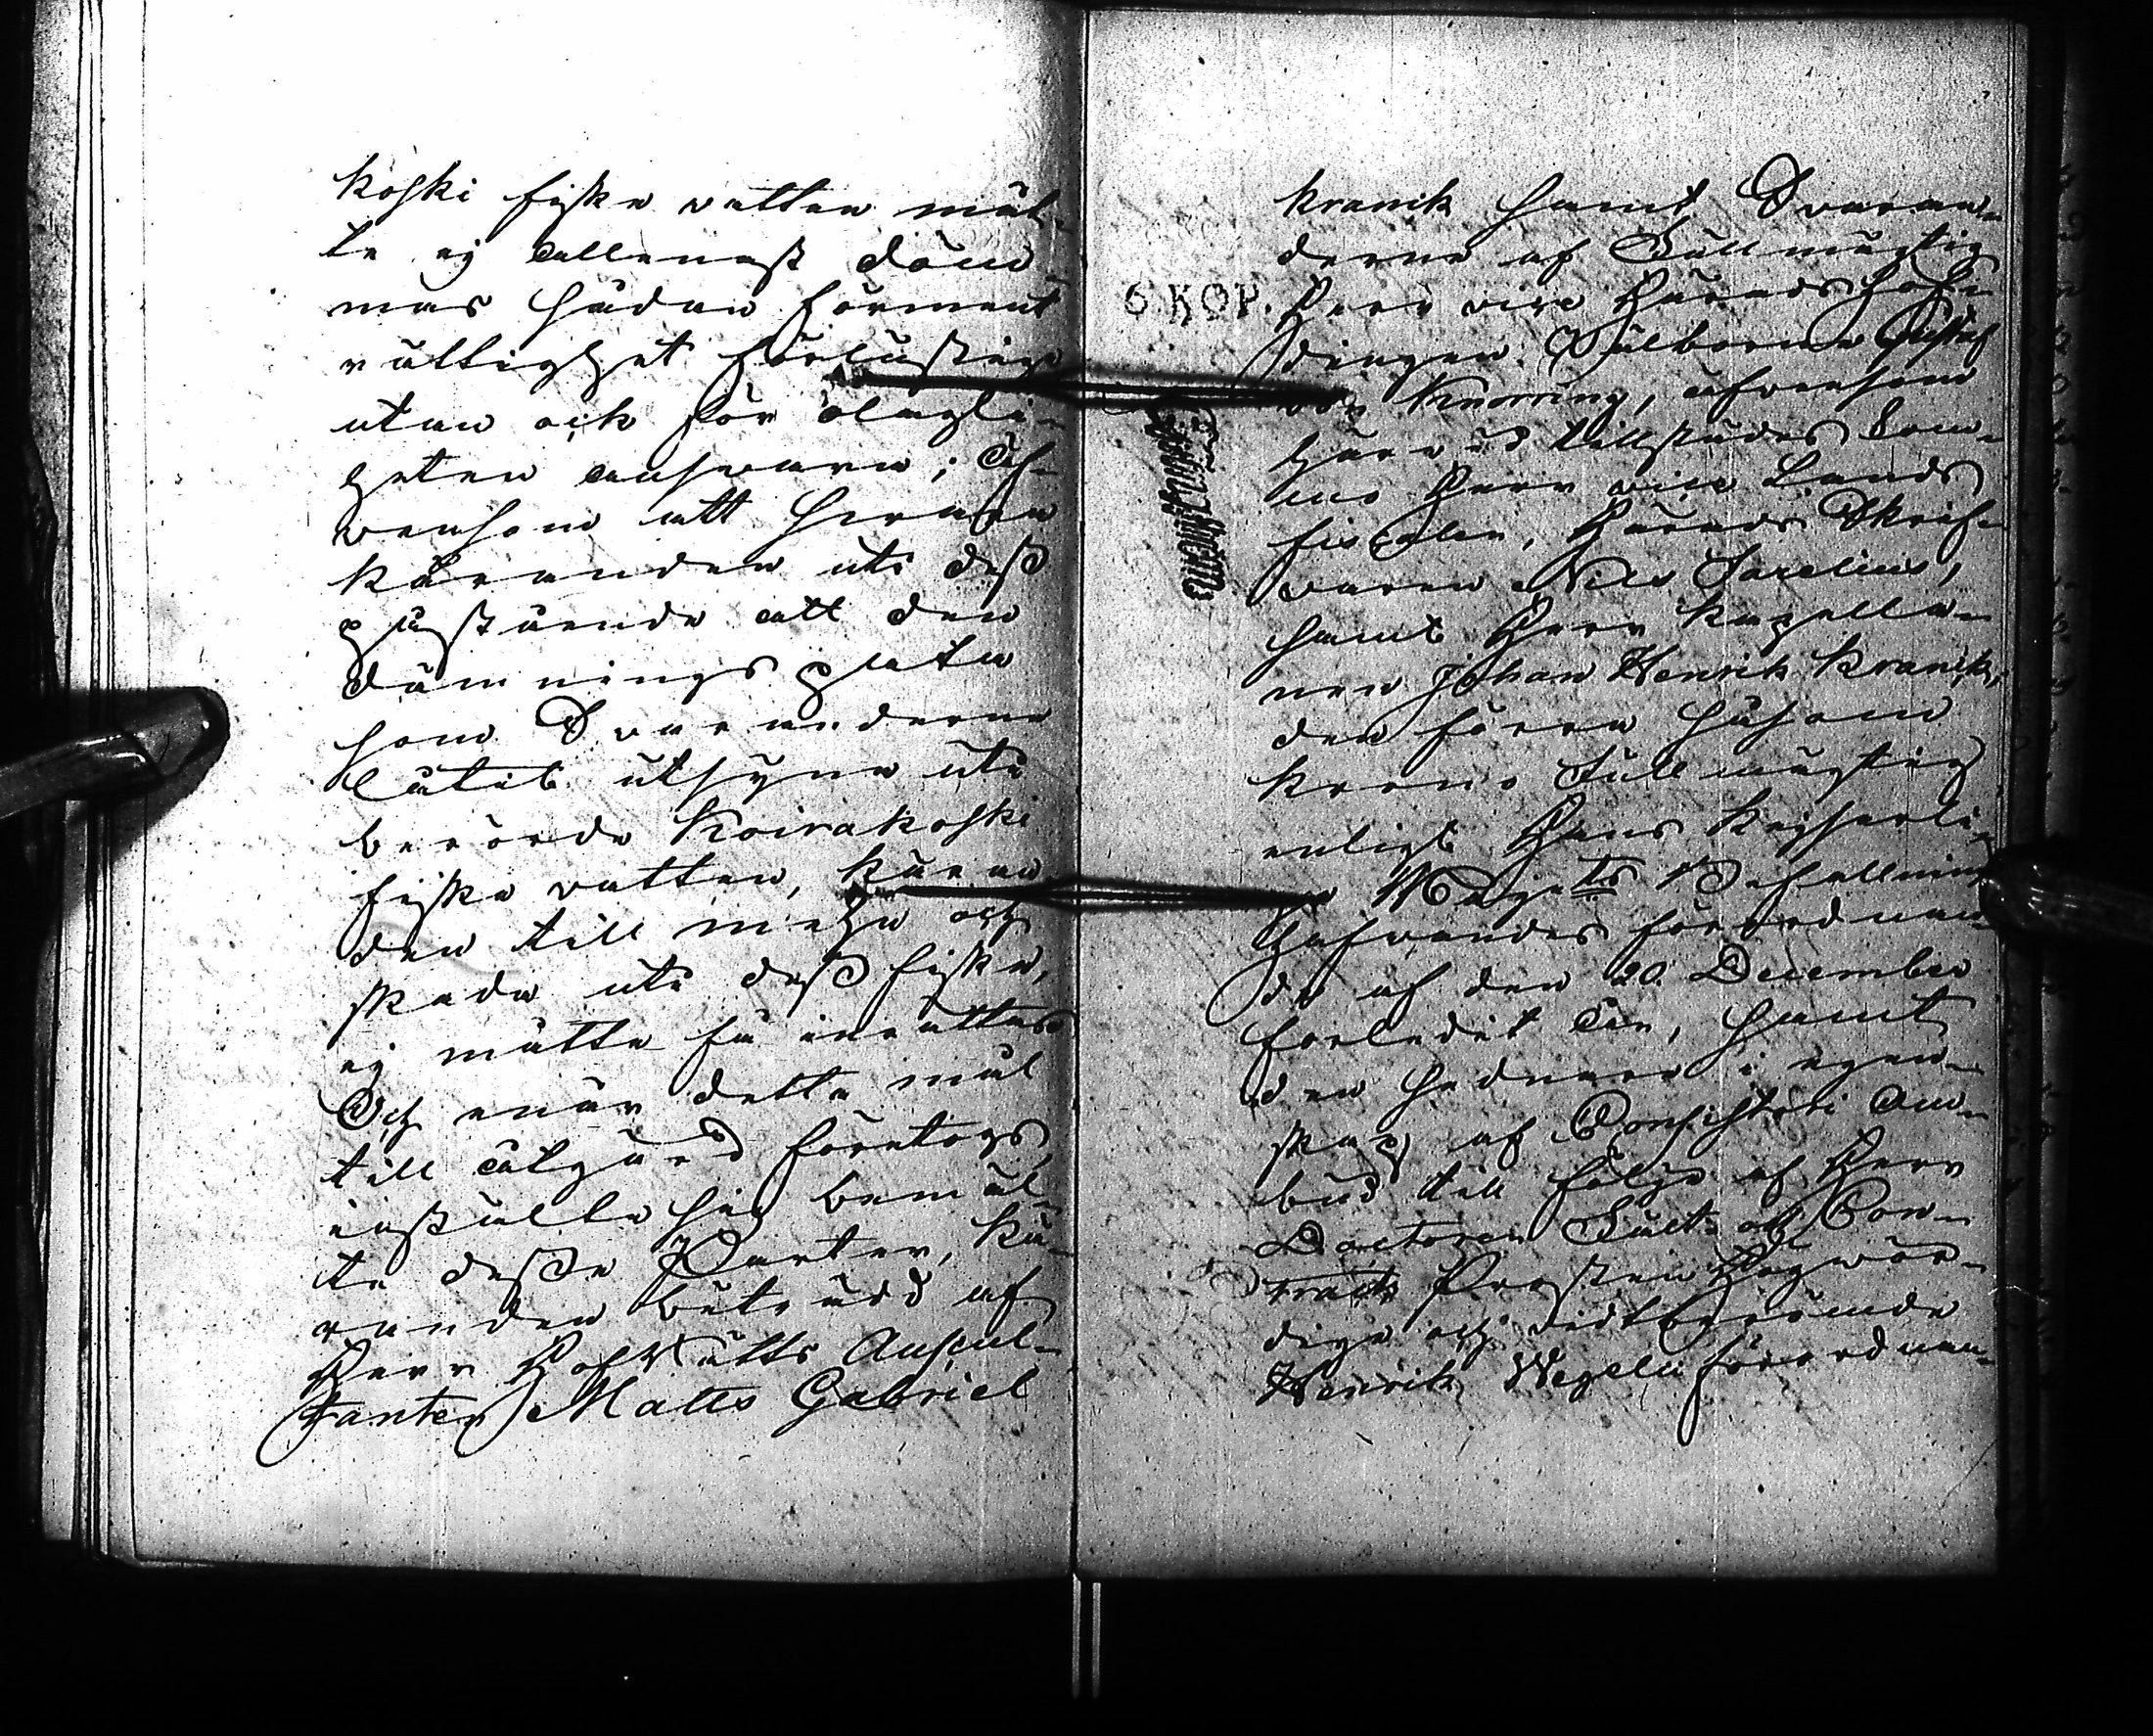 koski fiske vatten måt-
te ej allenast döm-
mas sådan förment
rättighet förlustige
utan ock för olaglig-
heten answara; Äf-
wensom att
Käranden uti dess
påstående att den
dämnings
som Svaranderne
låtit utsyna uti
berörde Koirakoski
fiske vatten, käran-
den till mehn och
skada uti dess fiske,
ej måtte få inrättas
Och enär dette mål
till åtgärd företogs,
inställte sig bemäl-
te desse Parter, Kä-
randen biträdd af
Herr HofRätts Auscul-
tanten Matts Gabriel
Kranck samt Svaran-
derne af Fullmägtig
6 KOP.
Herr vice Häradshöf-
dingen Välborne Gustaf
von Knorring, äfvensom
häri tillstädes kom-
mo Herr vice Lands
fiscalen, Härads Skrif-
waren Nils Sarelius,
samt Herr Kapella-
nen Johan Henrik Kranck,
den förra såsom
krono Fullmägtig
enligt Hans Kejserli-
ga Majts Befallnings
hafwandes förordnan-
de af den 20 December
förledit år, samt
den sednare i egen-
skap af Consistorii Om-
bud till följe af Herr
Doctoren Fullt och Con-
tracts Prosten Högwör-
dige och vidtberömde
Henrik Wegelii förordnan-